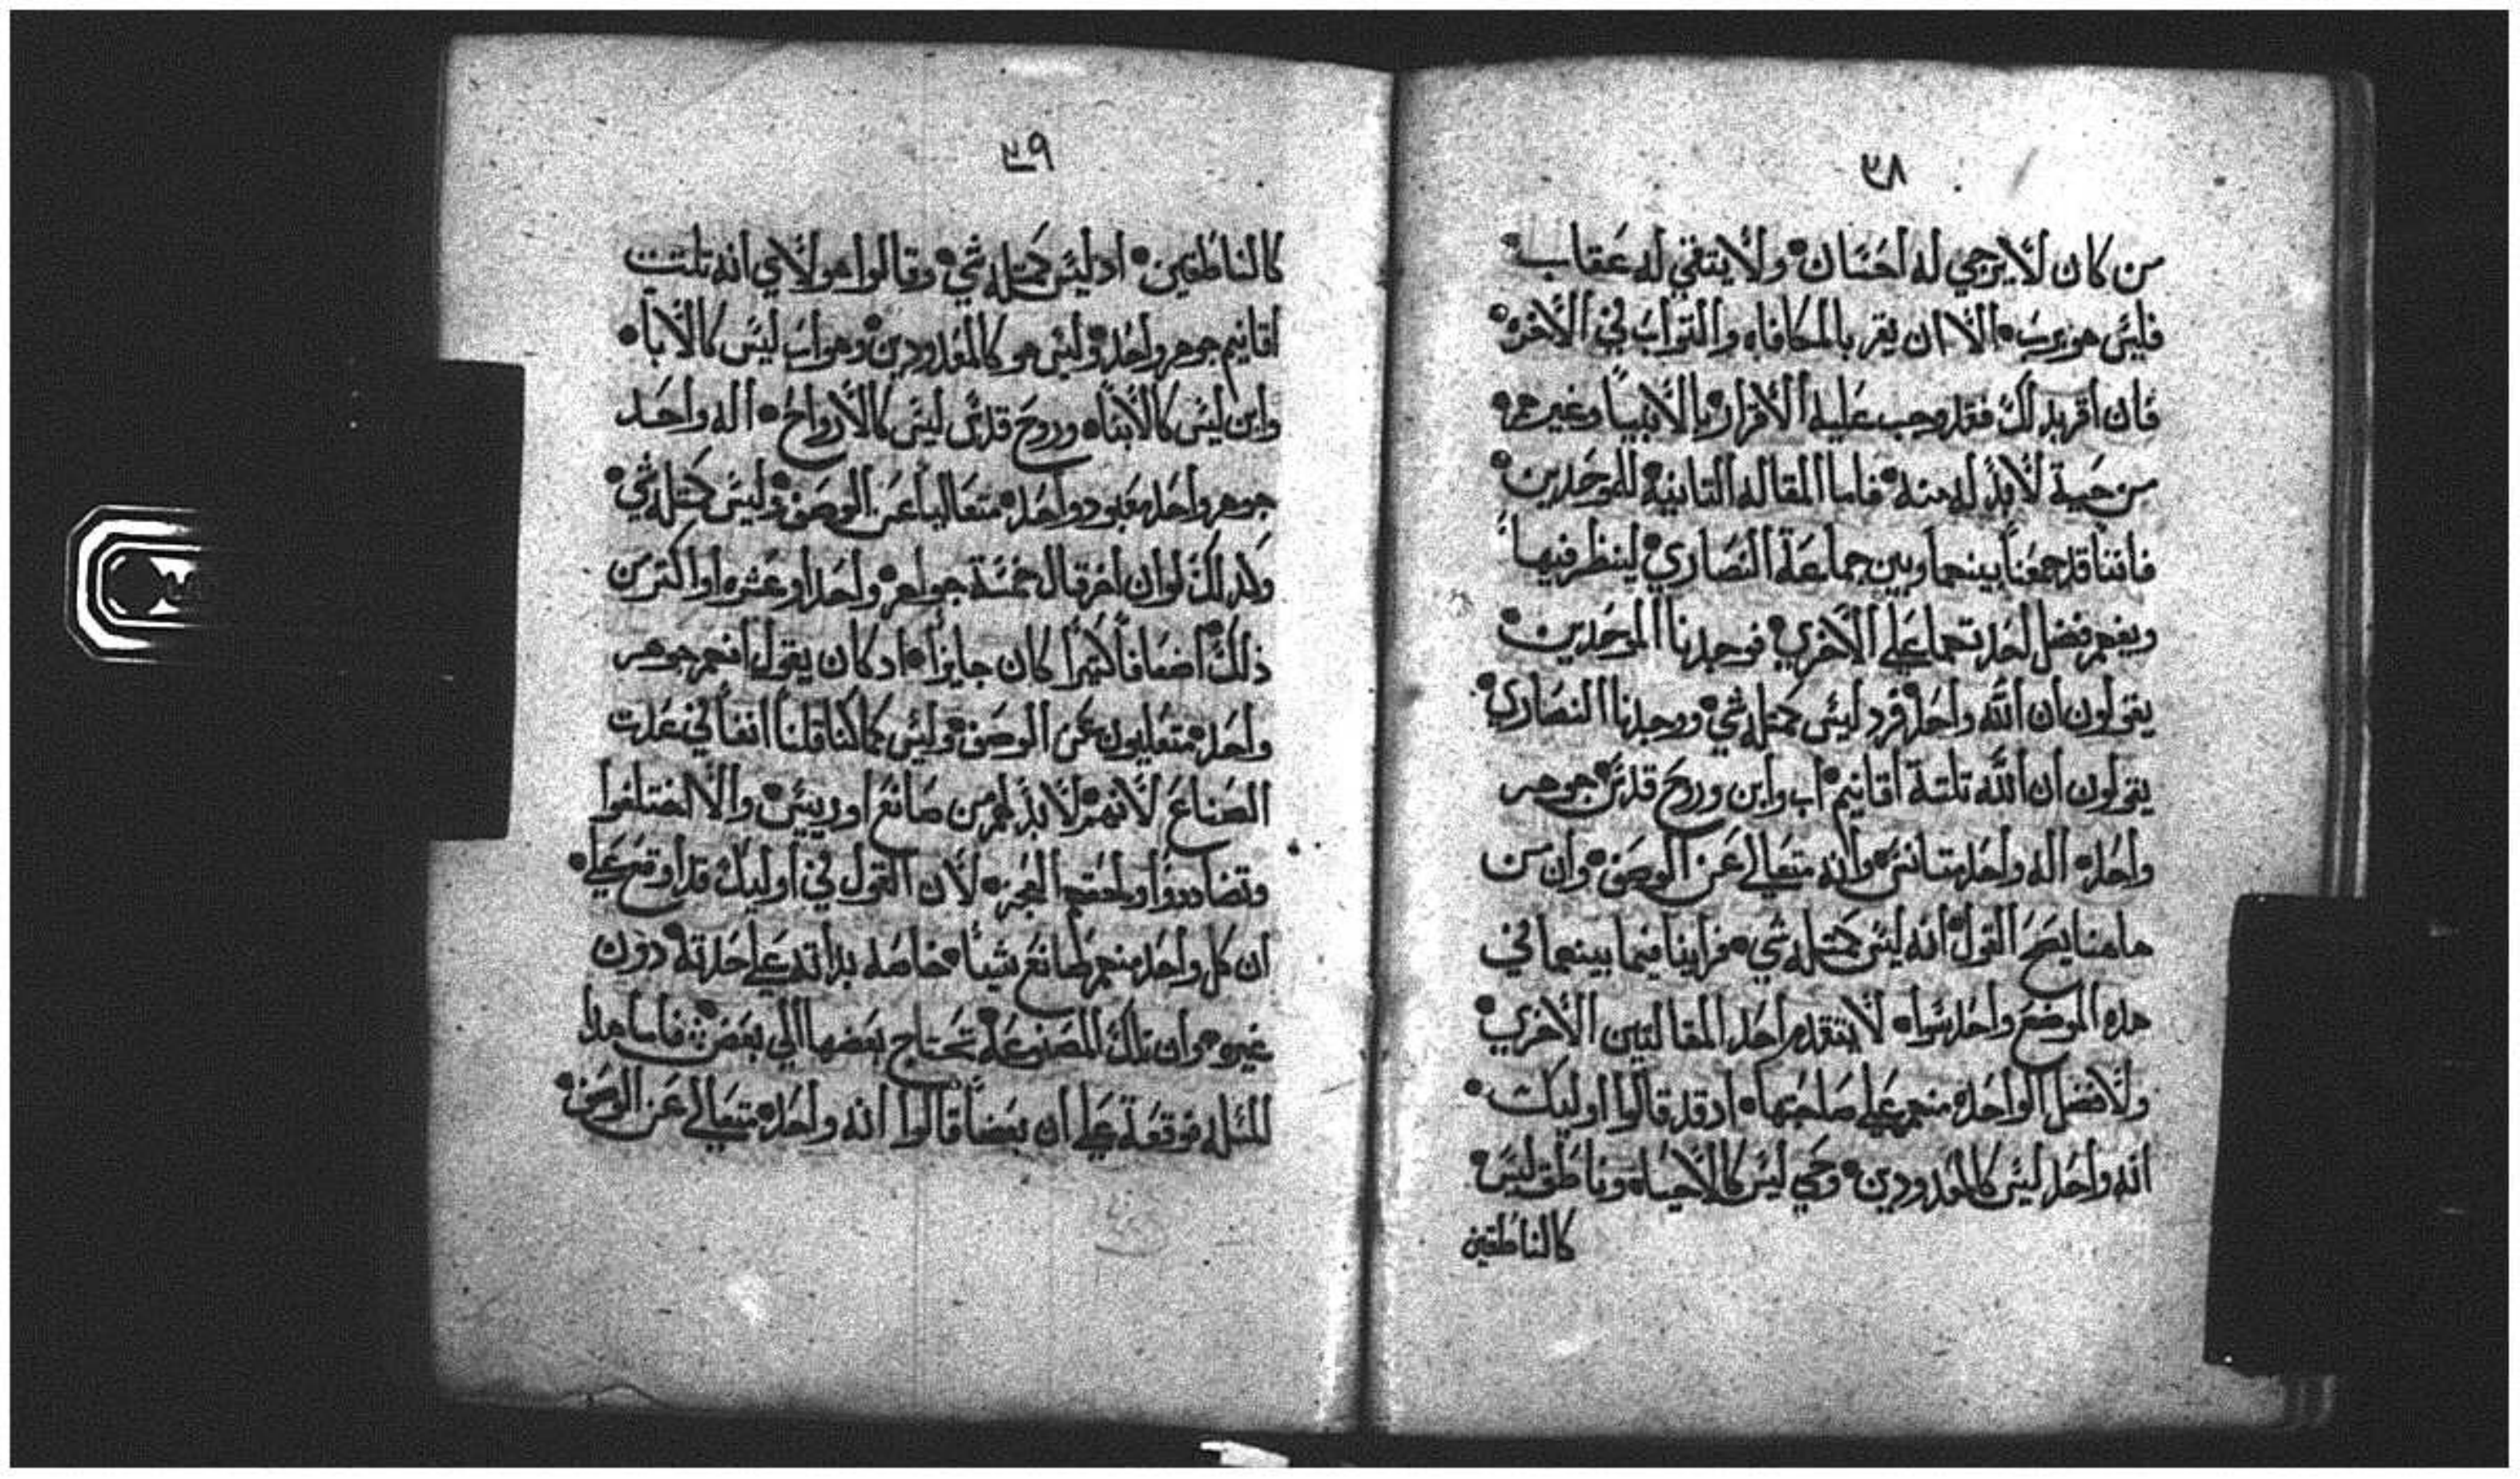 ٣٨
من كان لا يرجي له احسان • ولا يتقي له عقاب •
فليس هو برب • الا ان يقر بالمكافاه والتواب في الاخره •
فان اقر بدلك فقد وجب عليه الاقرار بالانبيا وغيرهم •
من حية لا بد له منه • فاما المقاله التانيه للموحدين •
فاننا قد جمعنا بينهما وبين جماعة النصاري لينظر فيها
ويفهم فضل احدتهما علي الاخري • فوجدنا الموحدين •
يقولون ان الله واحد فرد ليس كمتله شي • ووجدنا النصاري •
يقولون ان الله تلتة اقانيم • اب وابن وروح قدس جوهر
واحد • اله واحد وانه متعالي عن الوصف • وان من
هاهنا يصح القول انه ليس كمتله شي • فراينا فيما بينهما في
هده الموضع واحد سواه لا يتقدم احد المقالتين الاخري •
ولا فضل الواحده منهم علي صاحبتها • اد قد قالوا اوليك •
انه واحد ليس كالمعدودين • وحي ليس كالاحياه وناطق ليس •
كالناطقين
٣٩
كالناطقين • اد ليس كمتله شي • وقالوا هولاي انه تلتت
اقانيم جوهر واحد • وليس هو كالمعدودين • وهو اب ليس كالابا •
وابن ليس كالابناه وروح قدس ليس كالارواح • اله واحد
جوهر واحد معبود واحد • متعالياً عن الوصف • وليس كمتله شي •
وكدلك لو ان اخر قال خمسة جواهر • واحد او عشره او اكتر من
ذلك اضعافاً كتيرا كان جايزاً • اد كان يقول انهم جوهر
واحد • متعليون عن الوصف • وليس كما كنا قلنا انفا في علت
الصناع لانهم لا بد لهم من صانع او رييس • والا اختلفوا
وتضاددوا ولحقهم العجز • لان القول في اوليك قد اوقع علي •
ان كل واحد منهم صانع شياً • خاصه بداته علي حدته دون
غيره • وان تلك المصنوعه تحتاج بعضها الي بعض • فاما هدا
المتله فوقعة علي ان بعضاً قالوا انه واحد • متعالي عن الوصف •